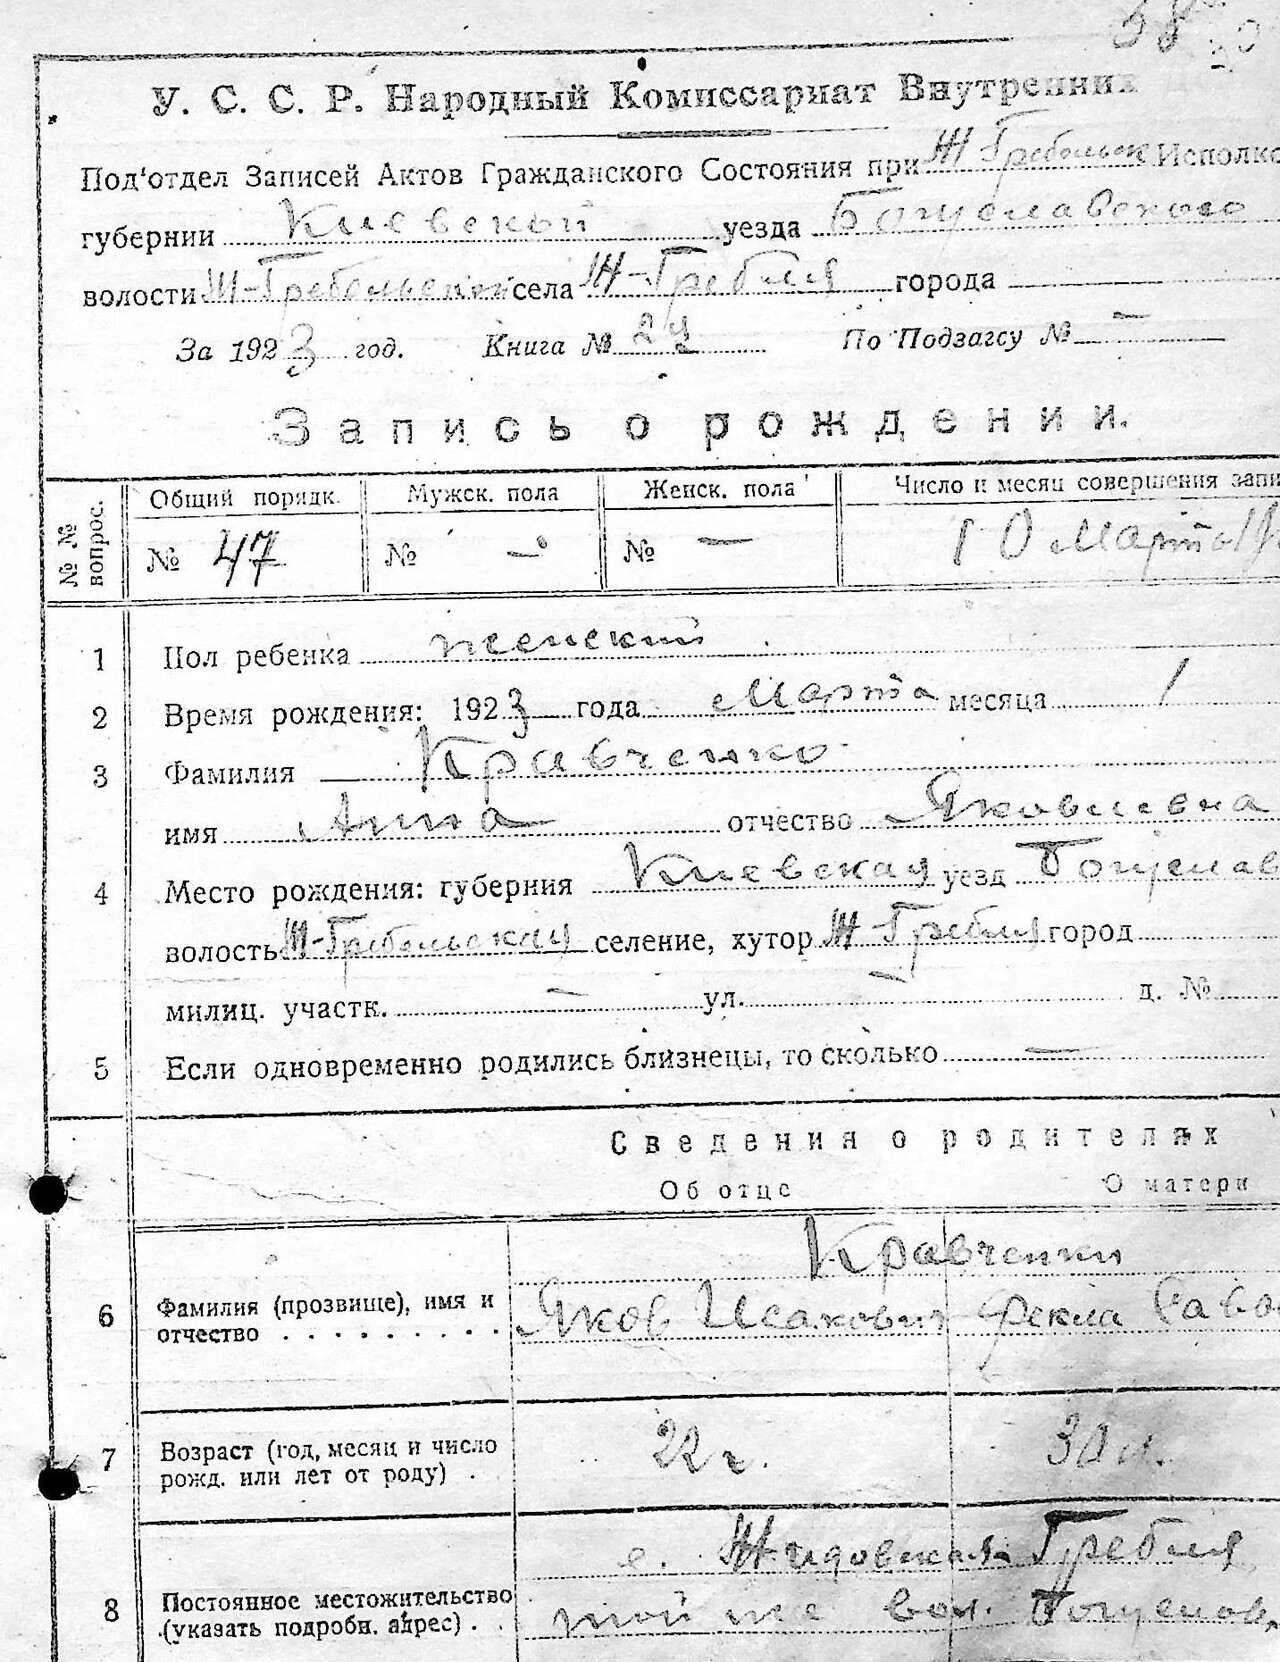 У. С. С. Р. Народный Комиссариат Внутренних
Под'отдел Записей Актов Гражданского Состояния при Ж Гребельск Исполко
губернии Киевской уезда Богуславского
волости Ж-Гребельской села Ж-Гребля города
За 1923 год. Книга № По Подзагсу № —
Запись о рождении.
№ № вопрос. Общий порядк. Мужск. пола Женск. пола Число и месяц совершения запи
№ 47 № — № — 10 Марта
1 Пол ребенка женский
2 Время рождения: 1923 года Марта месяца 1
3 Фамилия Кравченко
имя Анна отчество Яковлевна
4 Место рождения: губерния Киевская уезд Богуслав
волость Ж-Гребельская селение, хутор Ж-Гребля город
милиц. участк. — ул. — д. №
5 Если одновременно родились близнецы, то сколько —
Сведения о родителях
Об отце О матери
Кравченки
6 Фамилия (прозвище), имя и Яков Исакович Фекла
отчество . . . . . . . . . .
7 Возраст (год, месяц и число 22 г. 30 л.
рожд. или лет от роду) .
с. Жидовская Гребля
8 Постоянное местожительство той же вол. Богуслов.
(указать подробн. адрес) . .